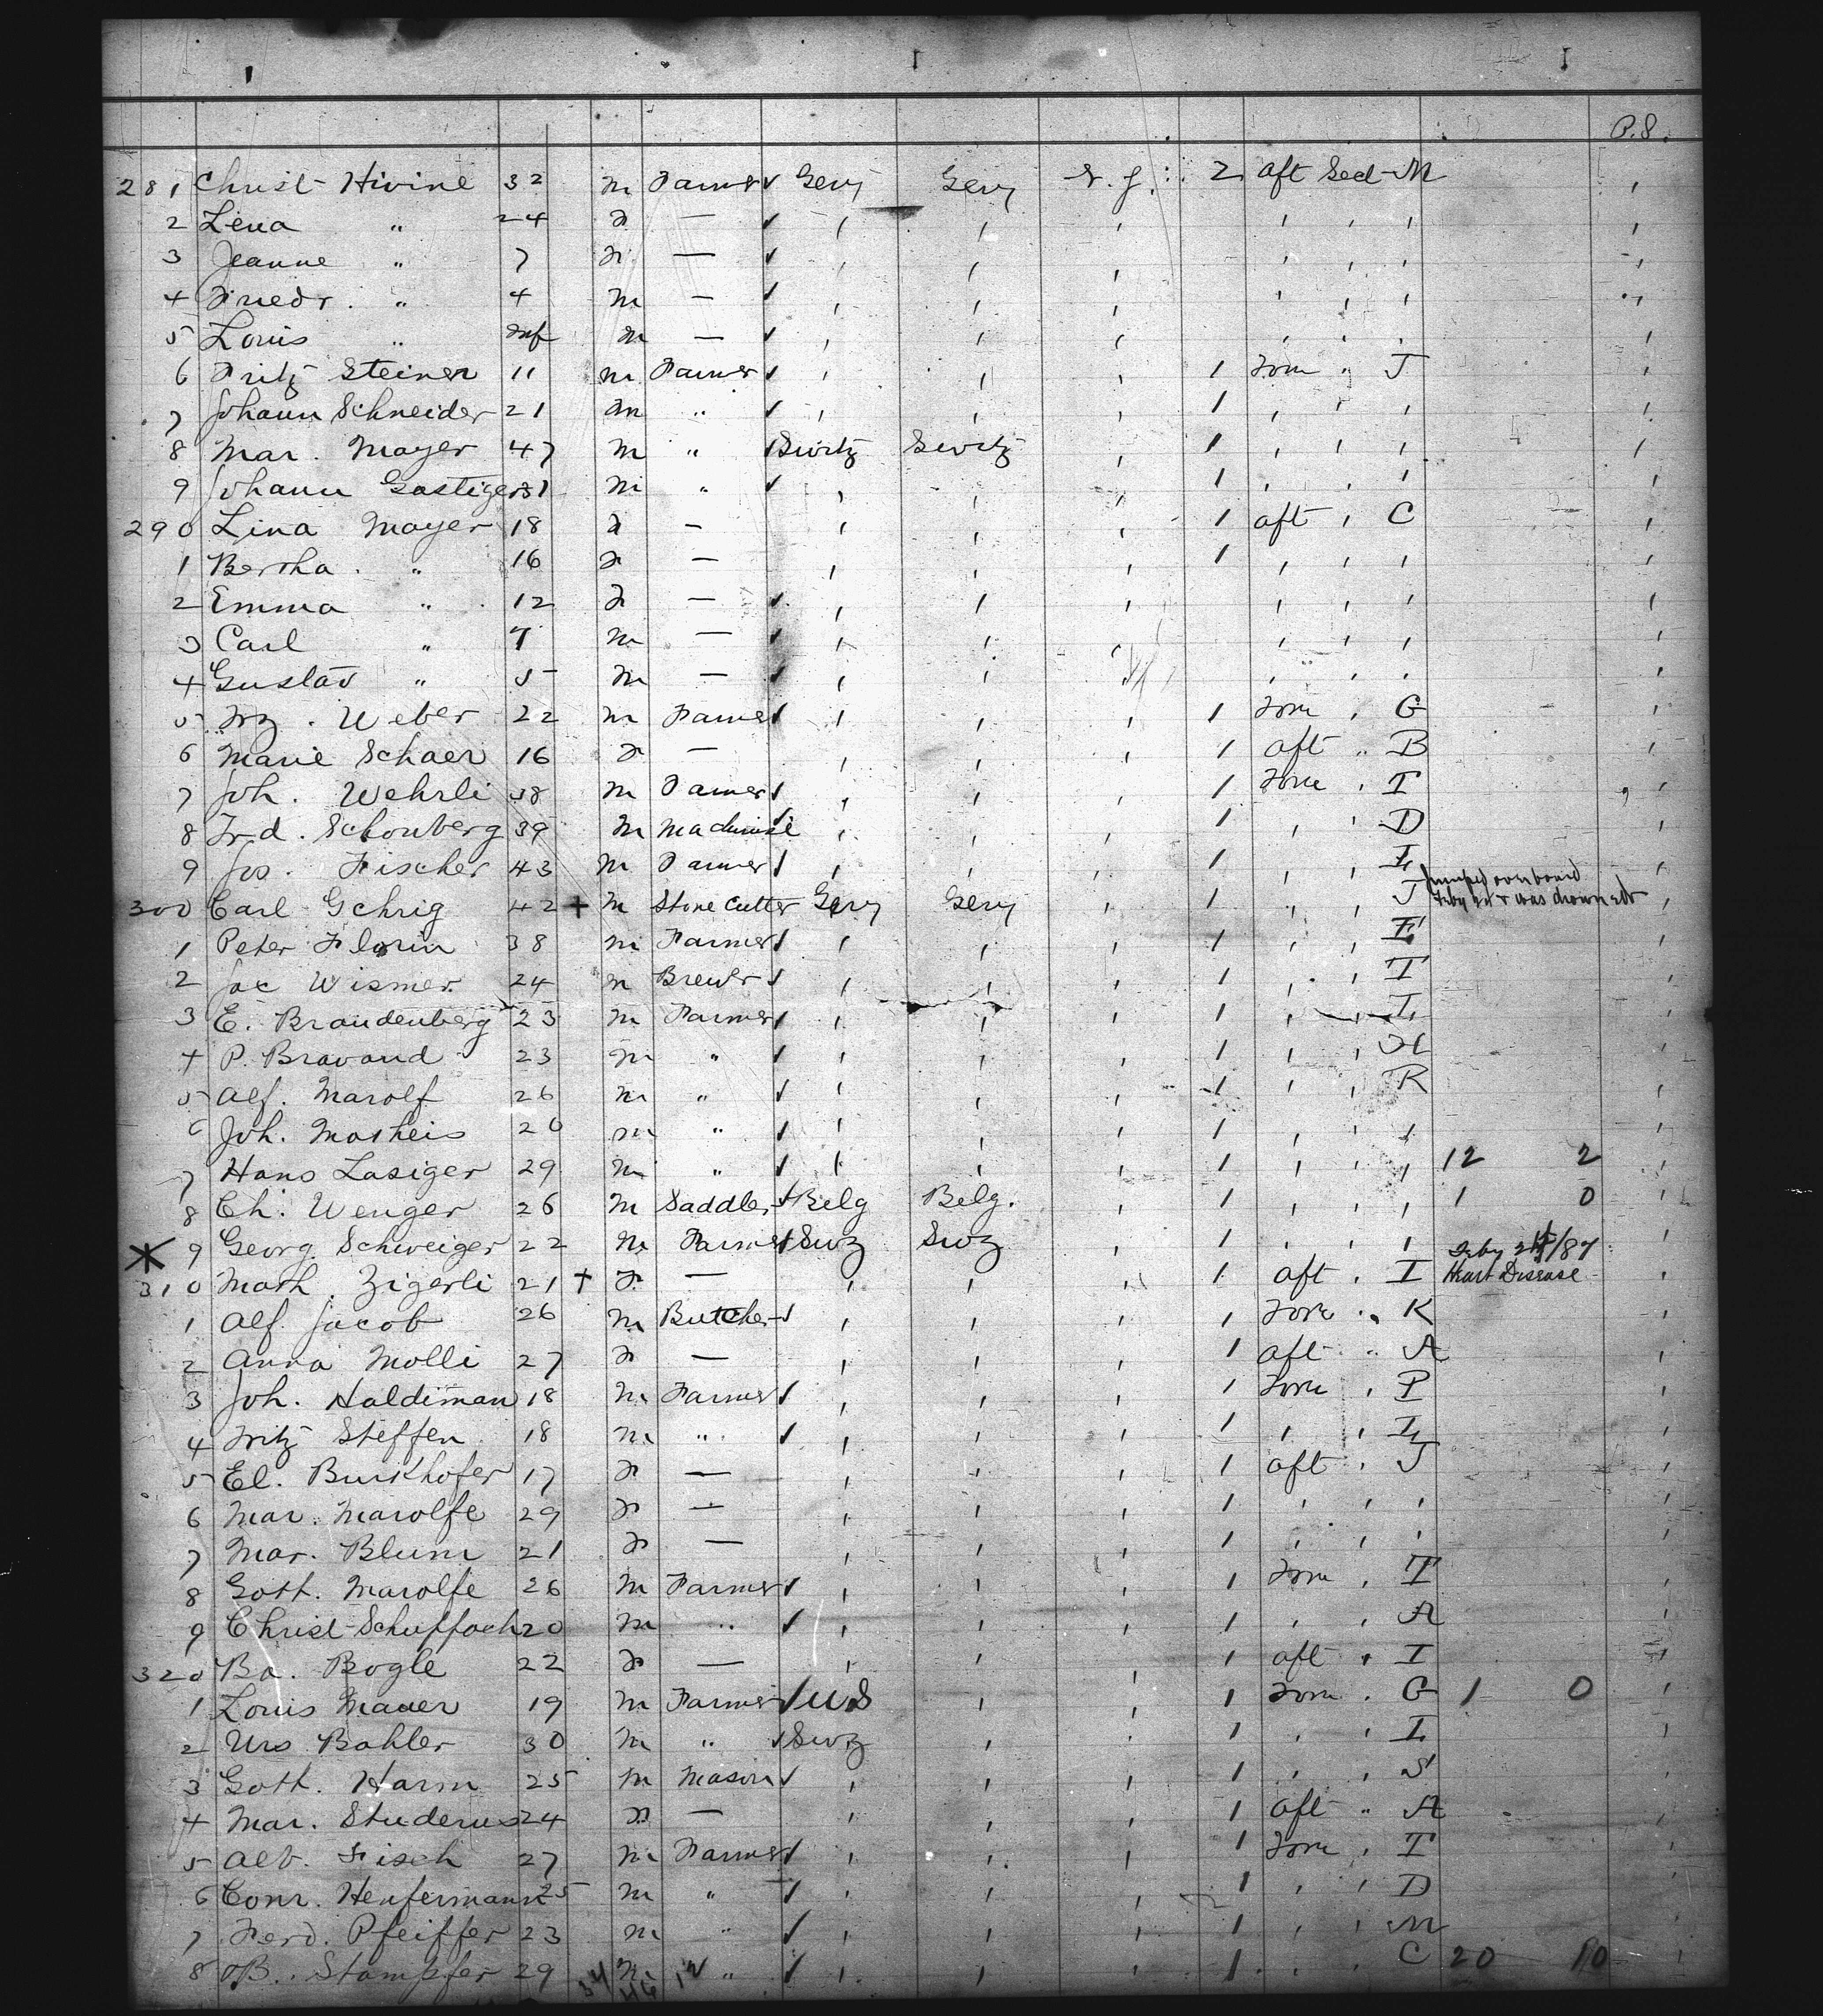 P.8.
281 Christ Hivine 32 m Farmer Gery Gery N.Y. 2 aft Sect M
2 Lena " 24 F —
3 Jeanne " 7 F —
4 Friedr. " 4 m —
5 Louis " Inf m —
6 Fritz Steiner 11 m Farmer 1 Forw " J
7 Johann Schneider 21 m " 1
8 Mar. Mayer 47 m " Switz Switz 1
9 Johann Gastiger 31 m " 1
290 Lina Mayer 18 F — 1 aft C
1 Bertha " 16 F — 1
2 Emma " 12 F —
3 Carl " 7 m —
4 Gustav " 5 m —
5 Frz. Weber 22 m Farmer 1 Forw G
6 Marie Schaer 16 F — 1 aft " B
7 Joh. Wehrli 38 m Farmer 1 Forw T
8 Frd. Schonberg 39 m Machinist 1 D
9 Jos. Fischer 43 m Farmer 1 L
300 Carl Gehrig 42 + m Stone Cutter Gery Gery 1 J Jumped overboard
Feby & was drowned
1 Peter Florin 38 m Farmer 1 E
2 Jac Wismer 24 m Brewer 1 T
3 E. Brandenberg 23 m Farmer 1 L
4 P. Bravand 23 m " 1 H
5 Alf. Marolf 26 m " 1 R
6 Joh. Matheis 20 m " 1
7 Hans Lasiger 29 m " 1 12 2
8 Ch. Wenger 26 m Saddler Belg Belg. 1 1 0
9 Georg Schweiger 22 m Farmer Swz Swz 1
310 Math. Zigerli 21 + F — 1 aft I Feby /87 Heart Disease
1 Alf. Jacob 26 m Butcher 1 Forw " K
2 Anna Molli 27 F — 1 aft " A
3 Joh. Haldiman 18 m Farmer 1 Forw P
4 Fritz Steffen 18 m " 1 L
5 El. Burkhofer 17 F — 1 aft J
6 Mar. Marolfe 29 F — 1
7 Mar. Blum 21 F — 1
8 Gott. Marolfe 26 m Farmer 1 Forw T
9 Christ Schuffach 20 m " 1 A
320 Ba. Bogle 22 F — 1 aft I
1 Louis Mauer 19 m Farmer US 1 Forw G 1 0
2 Urs Bahler 30 m " Swz 1 L
3 Gott. Harm 25 m Mason 1 S
4 Mar. Studerus 24 F — 1 aft " A
5 Alb. Fisch 27 m Farmer 1 Forw T
6 Conr. Heufermann 25 m " 1 D
7 Ferd. Pfeiffer 23 m " 1 M
8 B. Stampfer 29 m " 1 C 20 10
34 46 12